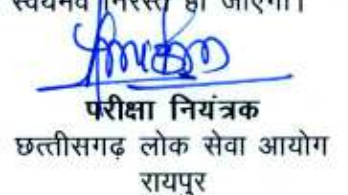 स्वयंमेव निरस्त हो जाएगा।
परीक्षा नियंत्रक
छत्तीसगढ़ लोक सेवा आयोग
रायपुर